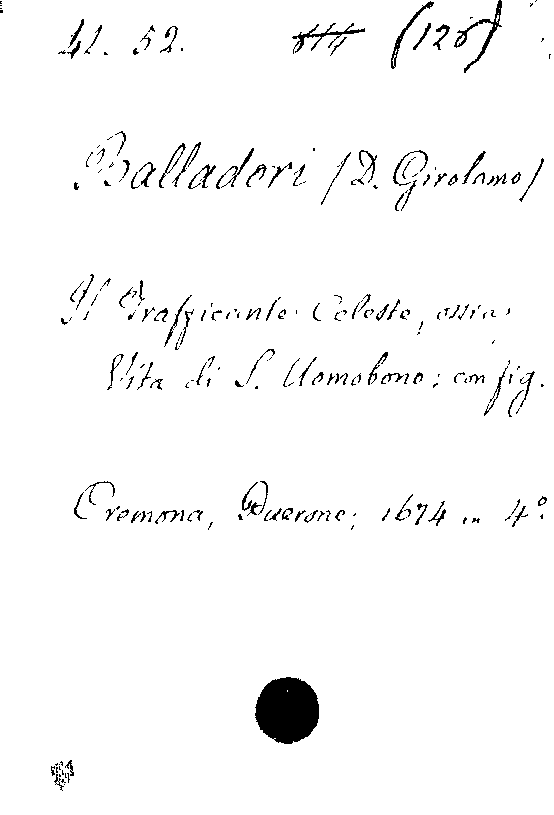 41. 52. (128)
Balladori (D. Girolamo)
Il Trafficante Celeste, ossia
Vita di S. Uomobono: con fig.
Cremona, Duerone; 1674 in 4°